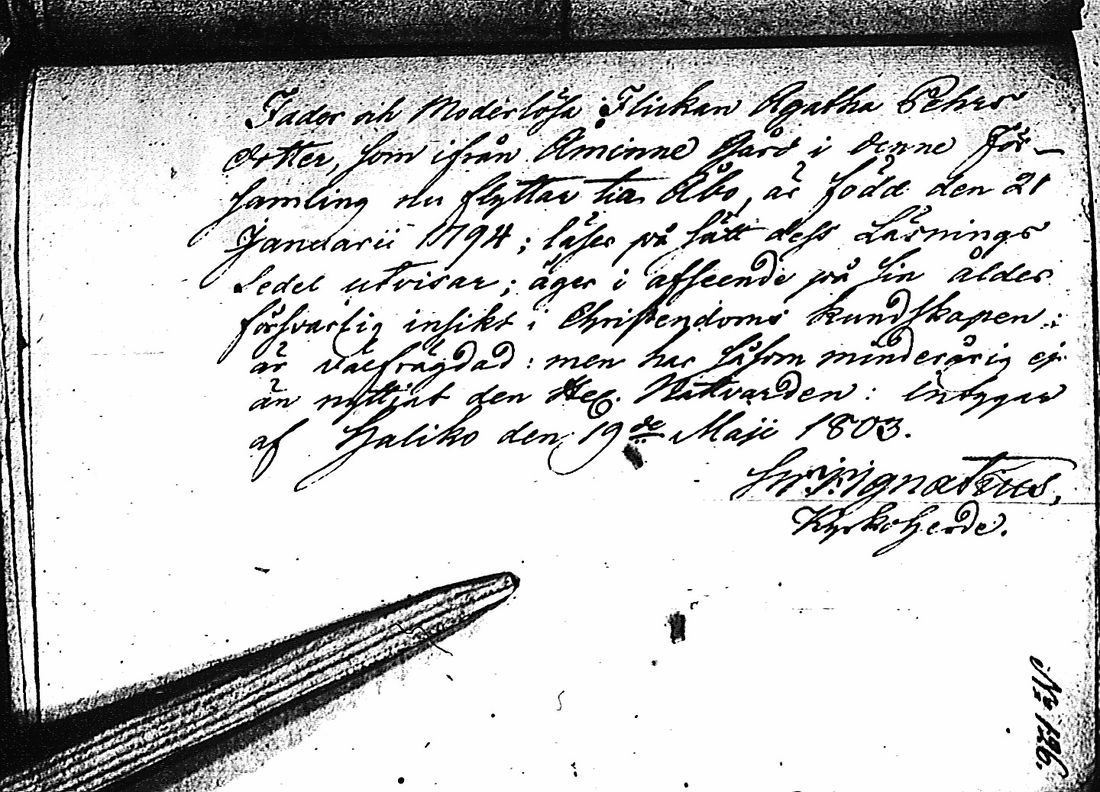 Fader och Moderlösa Flickan Agatha Pehrs
dotter, som ifrån Åminne Gård i denne För-
samling nu flyttar till Åbo, är född den 21
Januarii 1794; läser på sätt dess Läsnings
Sedel utvisar; äger i afseende på sin ålder
försvarlig insikt i Christendoms kundskapen;
är välfrägdad: men har såsom minderårig ej
än nyttjat den Hel. Nattvarden: intygar
af Haliko den 19de Maji 1803.
Ignatius,
Kyrkoherde.
No 126.